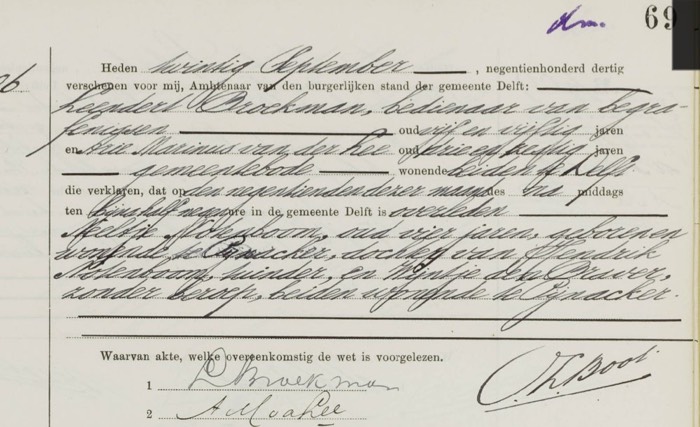 dm. 69
96.
Heden twintig September, negentienhonderd dertig
verschenen voor mij, Ambtenaar van den burgerlijken stand der gemeente Delft:
Leendert Broekman, bedienaar van begra-
fenissen oud vijf en vijftig jaren
en Arie Marinus van der Lee oud drie en zestig jaren
gemeentebode wonende beiden te Delft
die verklaren, dat op den negentienden dezer maand des na middags
ten ure in de gemeente Delft is overleden
Neeltje Molenboom, oud vier jaren, geboren en
wonend te Pijnacker, dochter van Hendrik
Molenboom, tuinder, en Wijntje den Braver,
zonder beroep, beiden wonende te Pijnacker.
Waarvan akte, welke overeenkomstig de wet is voorgelezen.
1 L Broekman
2 A M v d Lee